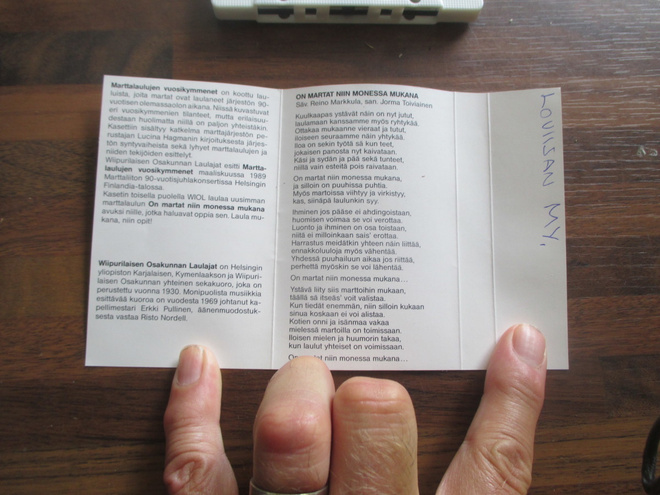 Marttalaulujen vuosikymmenet on koottu lau-
luista, joita martat ovat laulaneet järjestön 90-
vuotisen olemassaolon aikana. Niissä kuvastuvat
eri vuosikymmenien tilanteet, mutta erilaisuu-
destaan huolimatta niillä on paljon yhteistäkin.
Kasettiin sisältyy katkelma marttajärjestön pe-
rustajan Lucina Hagmanin kirjoituksesta järjes-
tön syntyvaiheista sekä lyhyet marttalaulujen ja
niiden tekijöiden esittelyt.
Wiipurilaisen Osakunnan Laulajat esitti Martta-
laulujen vuosikymmenet maaliskuussa 1989
Marttaliiton 90-vuotisjuhlakonsertissa Helsingin
Finlandia-talossa.
Kasetin toisella puolella WIOL laulaa uusimman
marttalaulun On martat niin monessa mukana
avuksi niille, jotka haluavat oppia sen. Laula mu-
kana, niin opit!
Wiipurilaisen Osakunnan Laulajat on Helsingin
yliopiston Karjalaisen, Kymenlaakson ja Wiipuri-
laisen Osakunnan yhteinen sekakuoro, joka on
perustettu vuonna 1930. Monipuolista musiikkia
esittävää kuoroa on vuodesta 1969 johtanut ka-
pellimestari Erkki Pullinen, äänenmuodostuk-
sesta vastaa Risto Nordell.
ON MARTAT NIIN MONESSA MUKANA
Säv. Reino Markkula, san. Jorma Toiviainen
Kuulkaapas ystävät näin on nyt jutut,
laulamaan kanssamme myös ryhtykää.
Ottakaa mukaanne vieraat ja tutut,
iloiseen seuraamme näin yhtykää.
Iloa on sekin työtä sä kun teet,
jokaisen panosta nyt kaivataan.
Käsi ja sydän ja pää sekä tunteet,
niillä vain esteitä pois raivataan.
On martat niin monessa mukana,
ja silloin on puuhissa puhtia.
Myös martoissa viihtyy ja virkistyy,
kas, siinäpä laulunkin syy.
Ihminen jos pääse ei ahdingoistaan,
huomisen voimaa se voi verottaa.
Luonto ja ihminen on osa toistaan,
niitä ei milloinkaan sais' erottaa.
Harrastus meidätkin yhteen näin liittää,
ennakkoluuloja myös vähentää.
Yhdessä puuhailuun aikaa jos riittää,
perheitä myöskin se voi lähentää.
On martat niin monessa mukana...
Ystävä liity siis marttoihin mukaan,
täällä sä itseäs' voit valistaa.
Kun tiedät enemmän, niin silloin kukaan
sinua koskaan ei voi alistaa.
Kotien onni ja isänmaa vakaa
mielessä martoilla on toimissaan.
Iloisen mielen ja huumorin takaa,
kun laulut yhteiset on voimissaan.
On martat niin monessa mukana...
LOVIISAN MY,